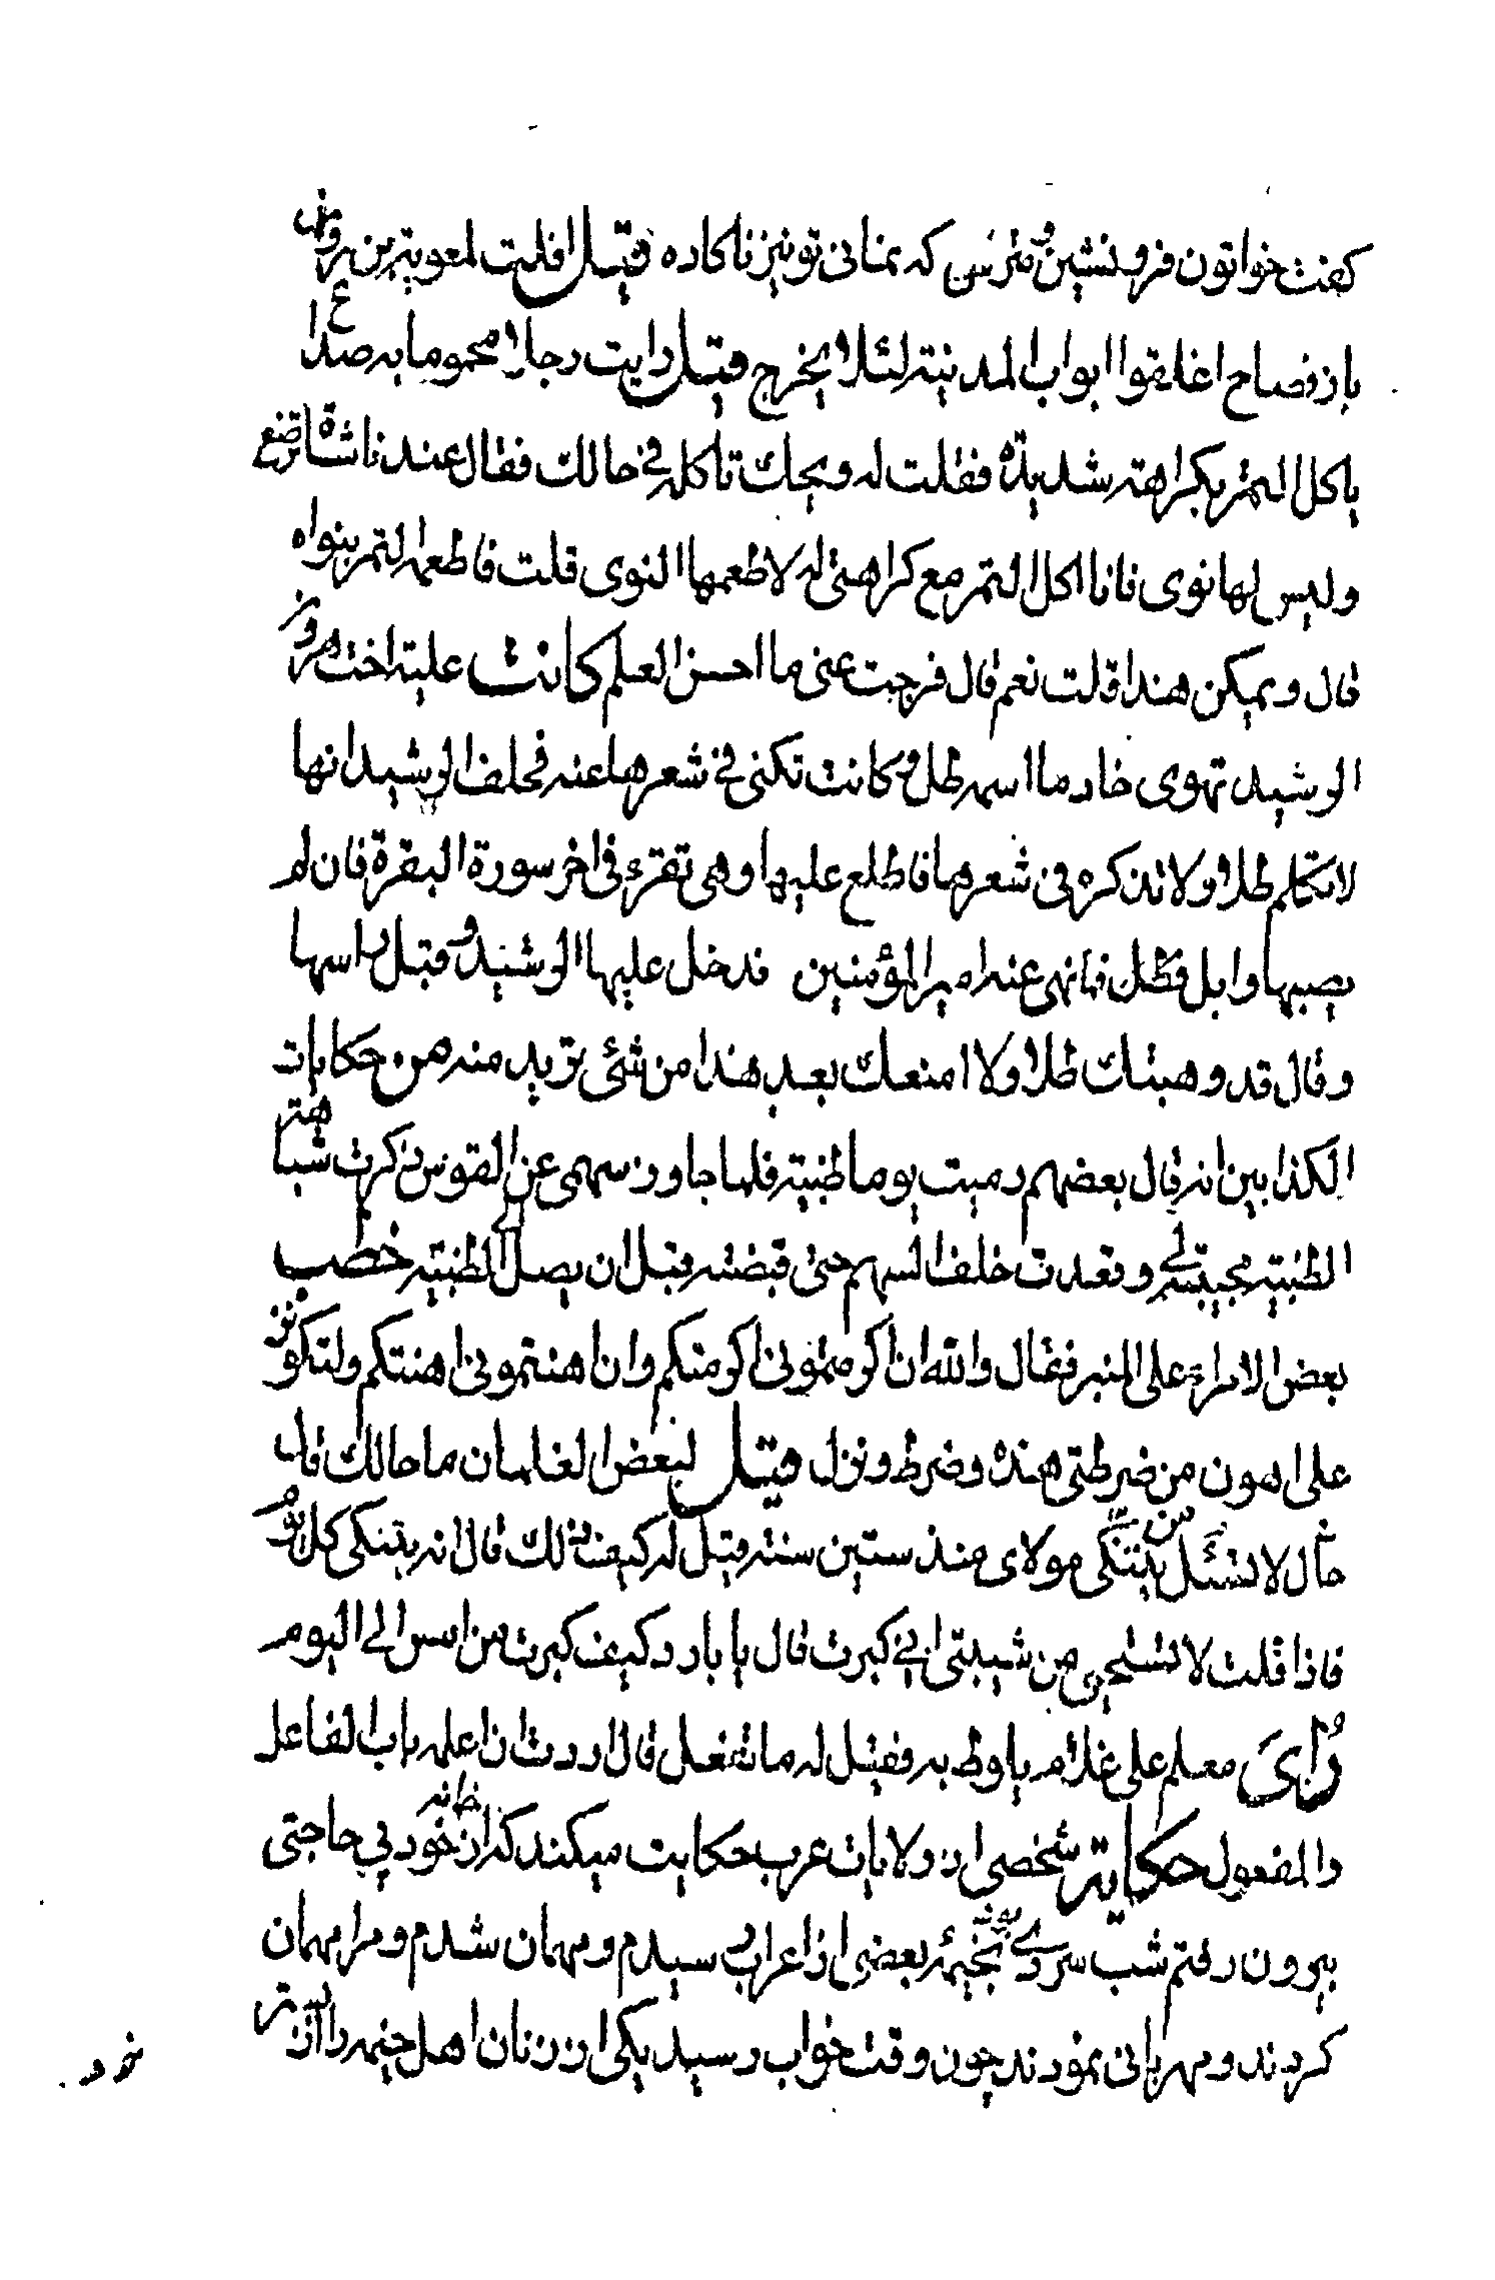 كفت خواتون فرو نشين و مترس كه نمانى تو نيز ناكاده قيل افلت لمعوية بن مروان
باز فصاح اغلقوا ابواب المدنية لئلا يخرج قيل رايت رجلا محموما به صداع
ياكل التمر بكراهة شديدة فقلت له ويحك تاكله فى حالك فقال عندنا شاة ترضع
وليس لها نوى فانا اكل التمر مع كراهتى له لاطعمها النوى قلت فاطعمه التمر بنواه
قال ويمكن هذا قلت نعم قال فرجت عنى ما احسن العلم كانت علية اخت هرون
الرشيد تهوى خادما اسمه طل وكانت تكنى فى شعرها عنه فحلف الرشيد انها
لا تتكلم طلا ولا تذكره فى شعرها فاطلع عليها وهى تقرء فى اخر سورة البقرة فان لم
يصبها وابل فطل فما نهى عنه امير المؤمنين فدخل عليها الرشيد وقبل راسها
وقال قد وهبتك طلا ولا امنعك بعد هذا من شئ تريد منه من حكايات
الكذابين انه قال بعضهم رميت يوما ظبية فلما جاوز سهمى عن القوس ذكرت شباهة
الظبية بحبيبتى وقعدت خلف السهم حتى قبضته قبل ان يصل الى الظبية خطب
بعض الامراء على المنبر فقال والله ان اكرمتمونى اكرمتكم وان اهنتمونى اهنتكم ولتكونن
على اهون من ضرطتى هذه وضرط ونزل قيل لبعض الغلمان ما حالك قال
حال لا تسئل من ينتكى مولاى منذ ستين سنة قيل له كيف ذلك قال انه ينتكى كل يوم
فاذا قلت لا تستحى من شيبتى انى كبرت قال يا بارد كيف كبرت من امس الى اليوم
رأى معلم على غلام يلوط به فقيل له ما تفعل قال اردت ان اعلمه باب الفاعل
والمفعول حكاية شخصى از ولايات عرب حكايت ميكند كه از خانه خود پى حاجتى
بيرون رفتم شب سردى بود بخيمهٔ بعضى از اعراب رسيدم ومهمان شدم ومرا مهمان
كردند ومهربانى نمودند چون وقت خواب رسيد يكى از زنان اهل خيمه را از بستر
خود